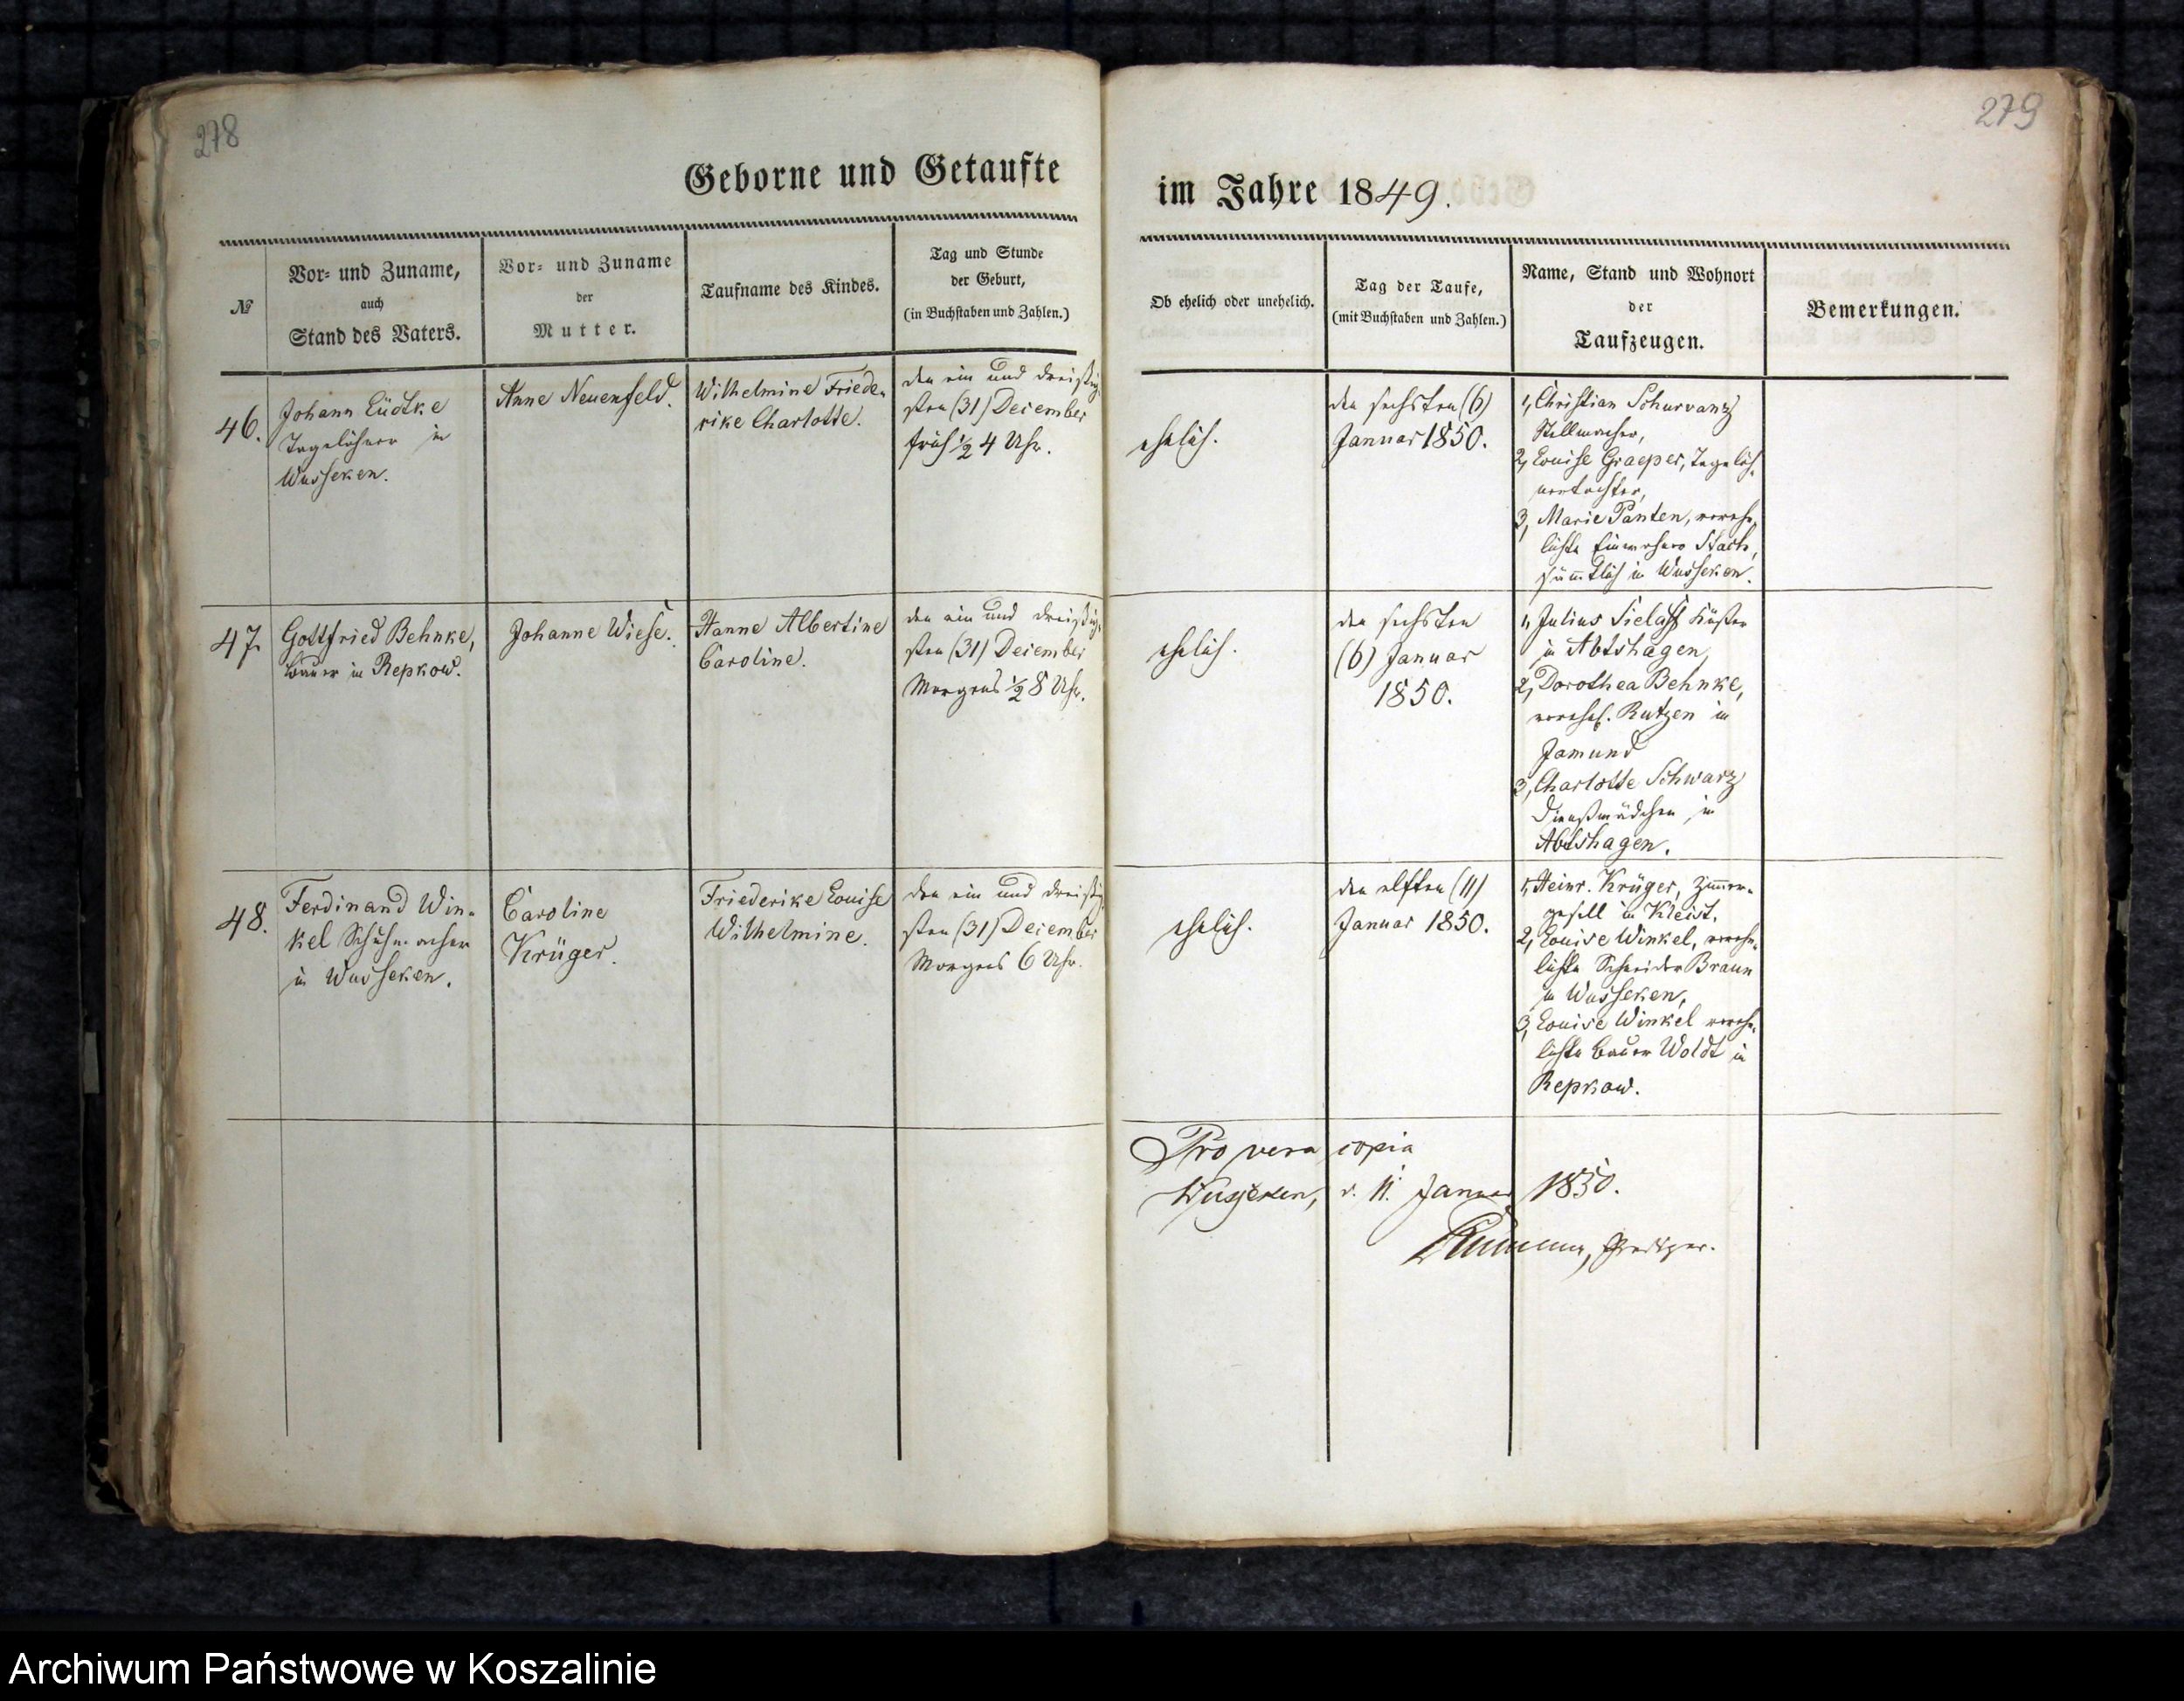 278
Geborne und Getaufte
№
Vor- und Zuname,
auch
Stand des Vaters.
Vor- und Zuname
der
Mutter.
Taufname des Kindes.
Tag und Stunde
der Geburt,
(in Buchstaben und Zahlen.)
46.
Johann Lüdtke
Tagelöhner in
Wusseken.
Anne Neuenfeld.
Wilhelmine Friede-
rike Charlotte.
den ein und dreißig-
sten (31) December
früh ½ 4 Uhr.
47.
Gottfried Behnke,
Bauer in Repkow.
Johanne Wiese.
Hanne Albertine
Caroline.
den ein und dreißig-
sten (31) December
Morgens ½ 8 Uhr.
48.
Ferdinand Win-
kel Schuhmacher
in Wusseken.
Caroline
Krüger.
Friederike Louise
Wilhelmine.
den ein und dreißig-
sten (31) December
Morgens 6 Uhr.
279
im Jahre 1849.
Ob ehelich oder unehelich.
Tag der Taufe,
(mit Buchstaben und Zahlen.)
Name, Stand und Wohnort
der
Taufzeugen.
Bemerkungen.
ehelich.
den sechsten (6)
Januar 1850.
1, Christian Schurvanz
Stellmacher,
2, Louise Graeper, Tagelöh-
nertochter,
3, Marie Panten, vereh-
lichte Einwohner
sämmtlich in Wusseken.
ehelich.
den sechsten
(6) Januar
1850.
1, Julius Sielaff Küster
in Abtshagen,
2, Dorothea Behnke,
verehel. Rutzen in
Jamund
3, Charlotte Schwarz
Dienstmädchen in
Abtshagen.
ehelich.
den elften (11)
Januar 1850.
1, Heinr. Krüger, Zimmer-
gesell in Kleist.
2, Louise Winkel, vereh-
lichte Schneider Braun
in Wusseken,
3, Louise Winkel vereh-
lichte Bauer Woldt in
Repkow.
Pro vera copia
Wusseken, d. 11. Januar 1850.
Prediger.
Archiwum Państwowe w Koszalinie